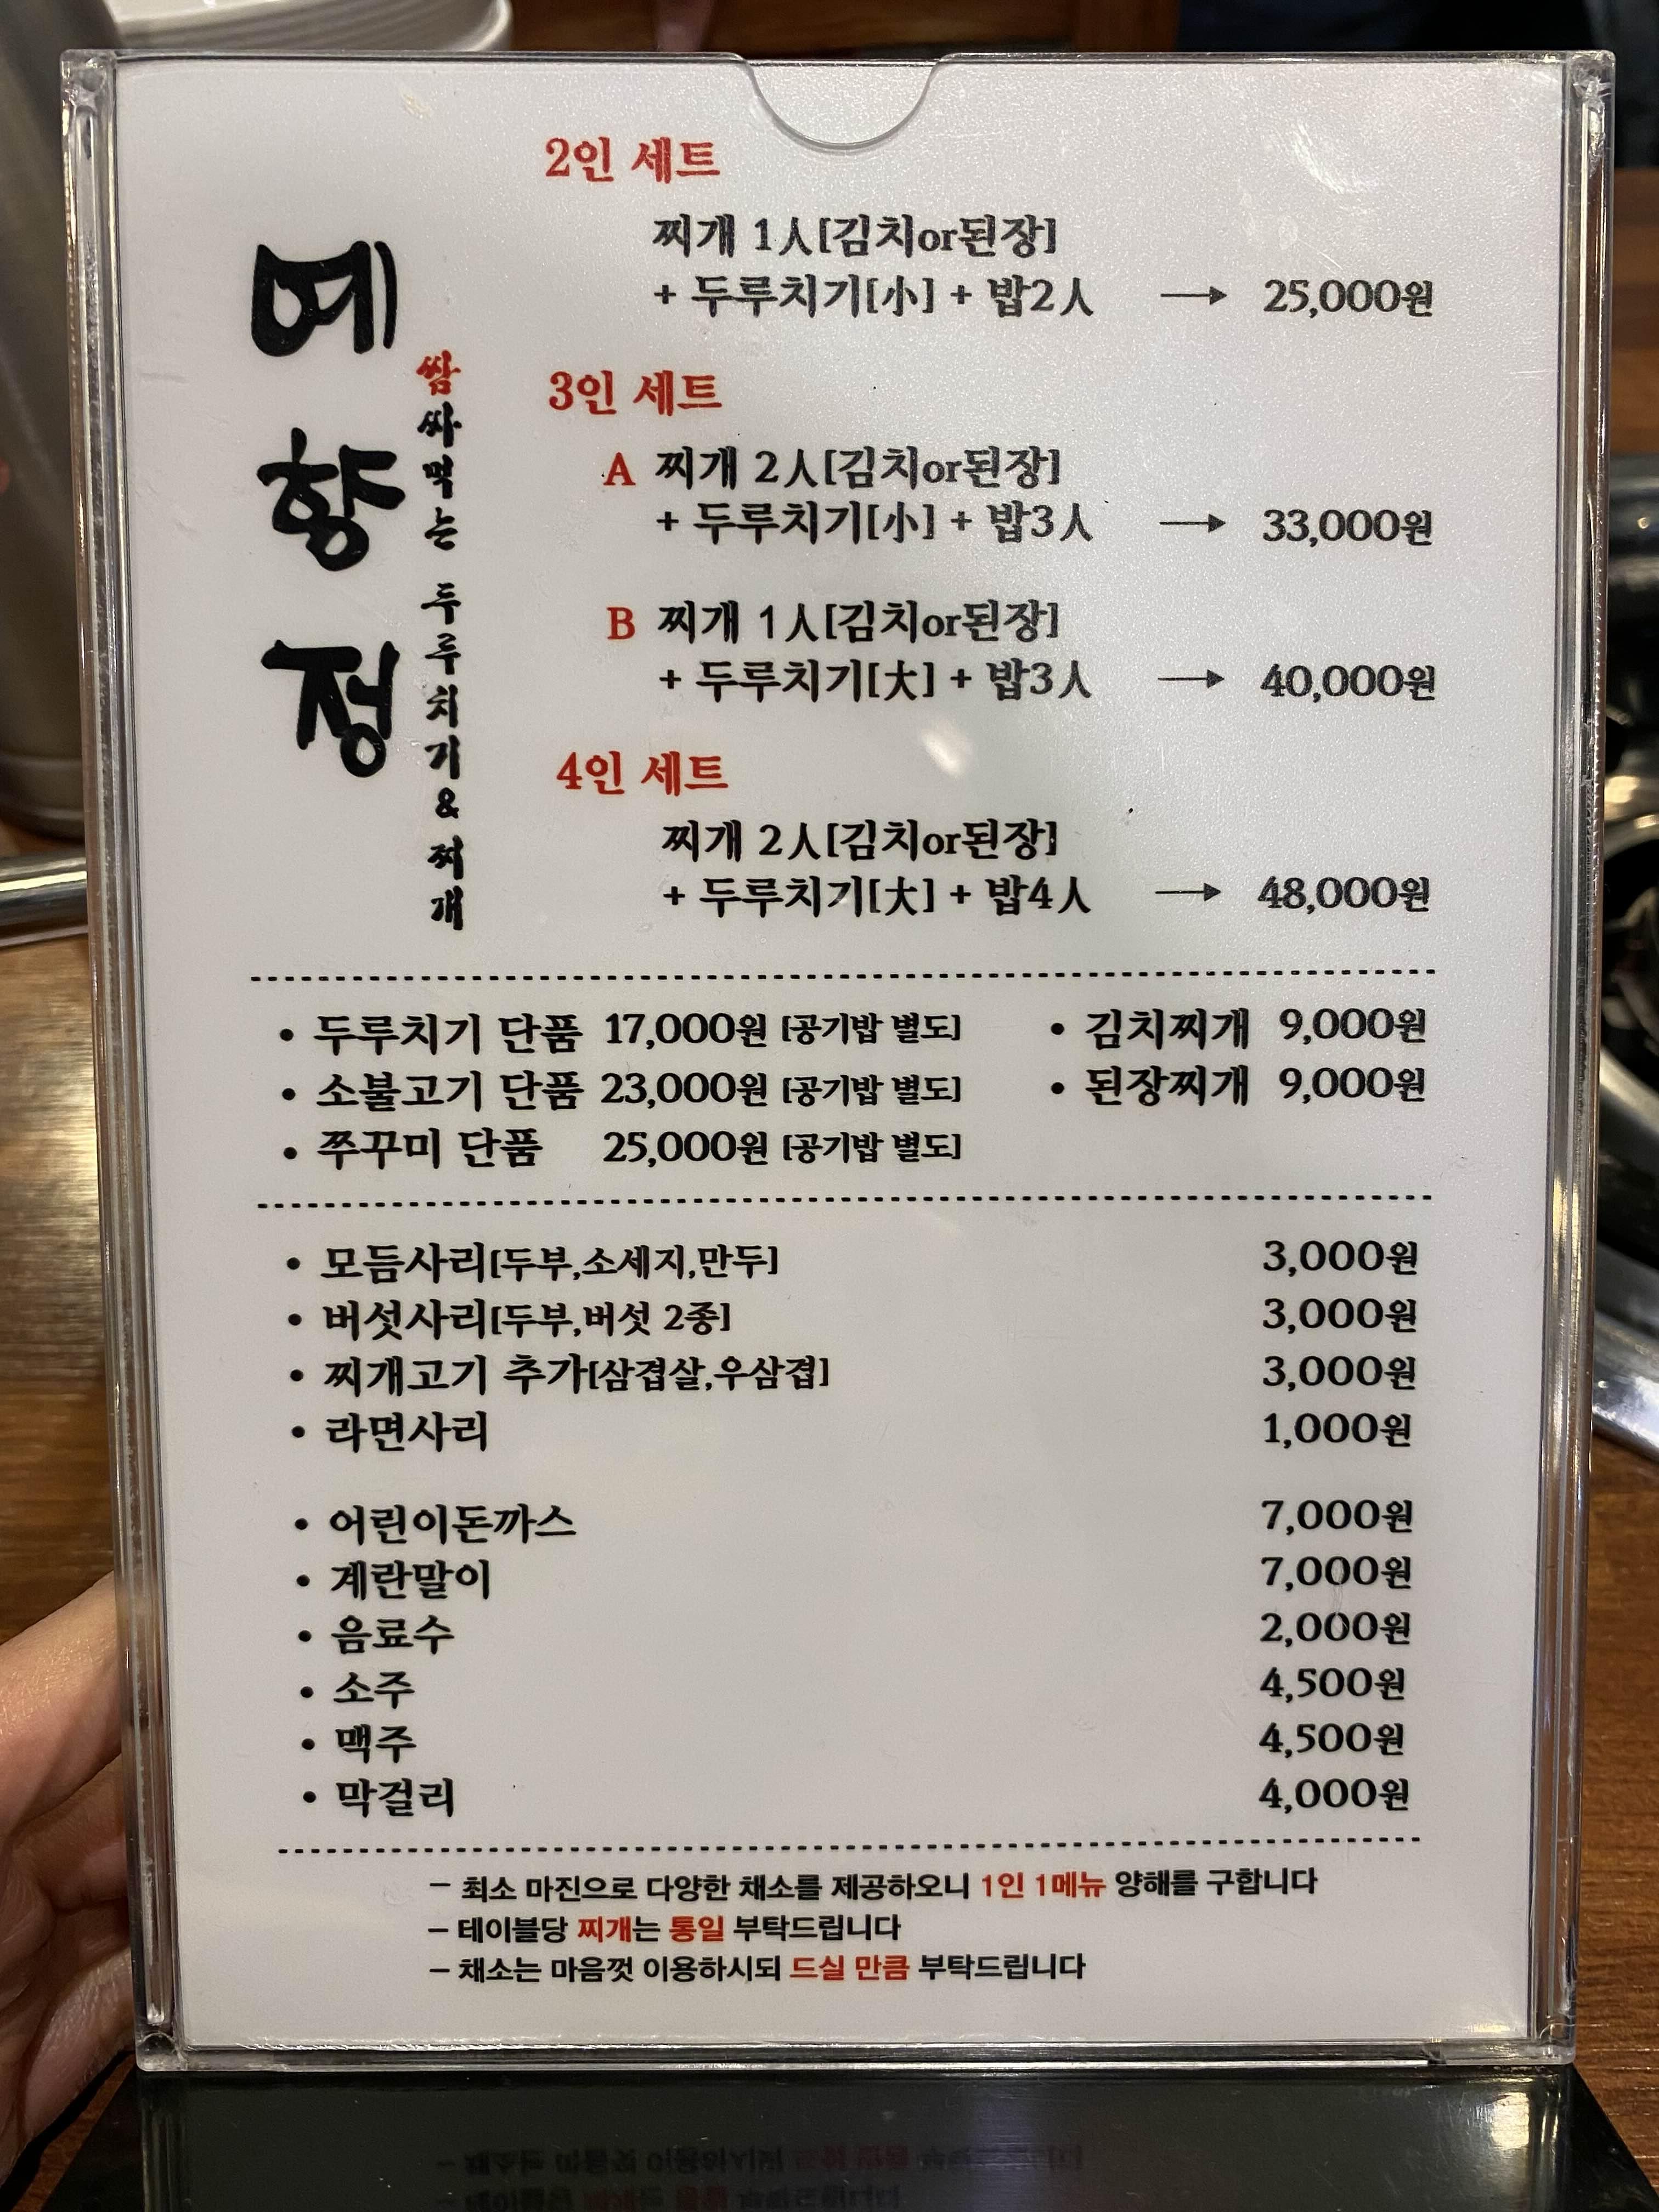 예향정
쌈싸먹는 두루치기&찌개
2인 세트
찌개 1人[김치or된장]
+ 두루치기[小] + 밥2人 → 25,000원
3인 세트
A 찌개 2人[김치or된장]
+ 두루치기[小] + 밥3人 → 33,000원
B 찌개 1人[김치or된장]
+ 두루치기[大] + 밥3人 → 40,000원
4인 세트
찌개 2人[김치or된장]
+ 두루치기[大] + 밥4人 → 48,000원
• 두루치기 단품 17,000원 [공기밥 별도]
• 소불고기 단품 23,000원 [공기밥 별도]
• 쭈꾸미 단품 25,000원 [공기밥 별도]
• 김치찌개 9,000원
• 된장찌개 9,000원
• 모듬사리[두부,소세지,만두] 3,000원
• 버섯사리[두부,버섯 2종] 3,000원
• 찌개고기 추가[삼겹살,우삼겹] 3,000원
• 라면사리 1,000원
• 어린이돈까스 7,000원
• 계란말이 7,000원
• 음료수 2,000원
• 소주 4,500원
• 맥주 4,500원
• 막걸리 4,000원
– 최소 마진으로 다양한 채소를 제공하오니 1인 1메뉴 양해를 구합니다
– 테이블당 찌개는 통일 부탁드립니다
– 채소는 마음껏 이용하시되 드실 만큼 부탁드립니다